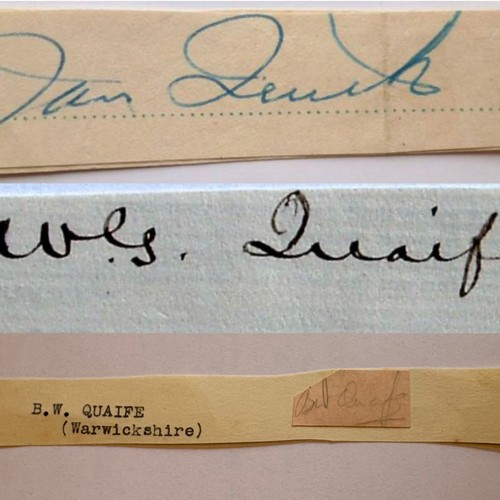 Ian Quick
W.G. Quaif
B.W. QUAIFE
(Warwickshire)
Quaife